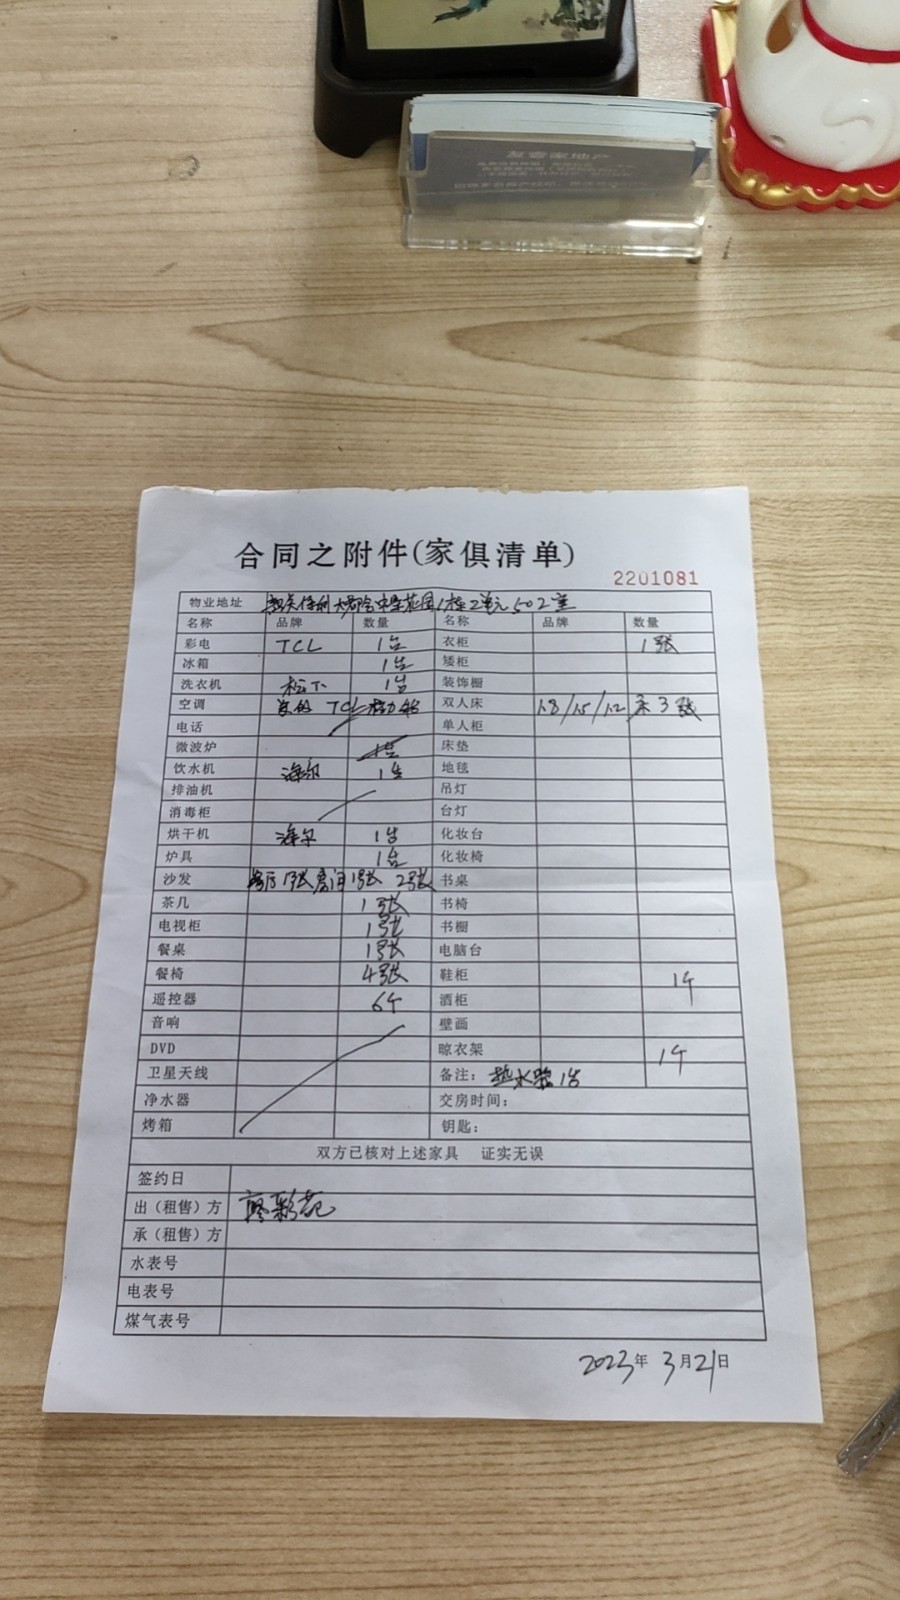 友壹家地产
合同之附件(家俱清单)
2201081
物业地址 韶关保利大都会中星花园1栋2单元502室
名称 品牌 数量 名称 品牌 数量
彩电 TCL 1台 衣柜 1张
冰箱 1台 矮柜
洗衣机 松下 1台 装饰橱
空调 TCL 双人床 1.8/1.5/1.2 床3张
电话 单人柜
微波炉 1台 床垫
饮水机 海尔 1台 地毯
排油机 吊灯
消毒柜 台灯
烘干机 海尔 1台 化妆台
炉具 1台 化妆椅
沙发 客厅1张房间1张 2张 书桌
茶几 1张 书椅
电视柜 1张 书橱
餐桌 1张 电脑台
餐椅 4张 鞋柜 1个
遥控器 6个 酒柜
音响 壁画
DVD 晾衣架 1个
卫星天线 备注：热水器1台
净水器 交房时间：
烤箱 钥匙：
双方已核对上述家具 证实无误
签约日
出（租售）方 廖彩苑
承（租售）方
水表号
电表号
煤气表号
2023年3月21日